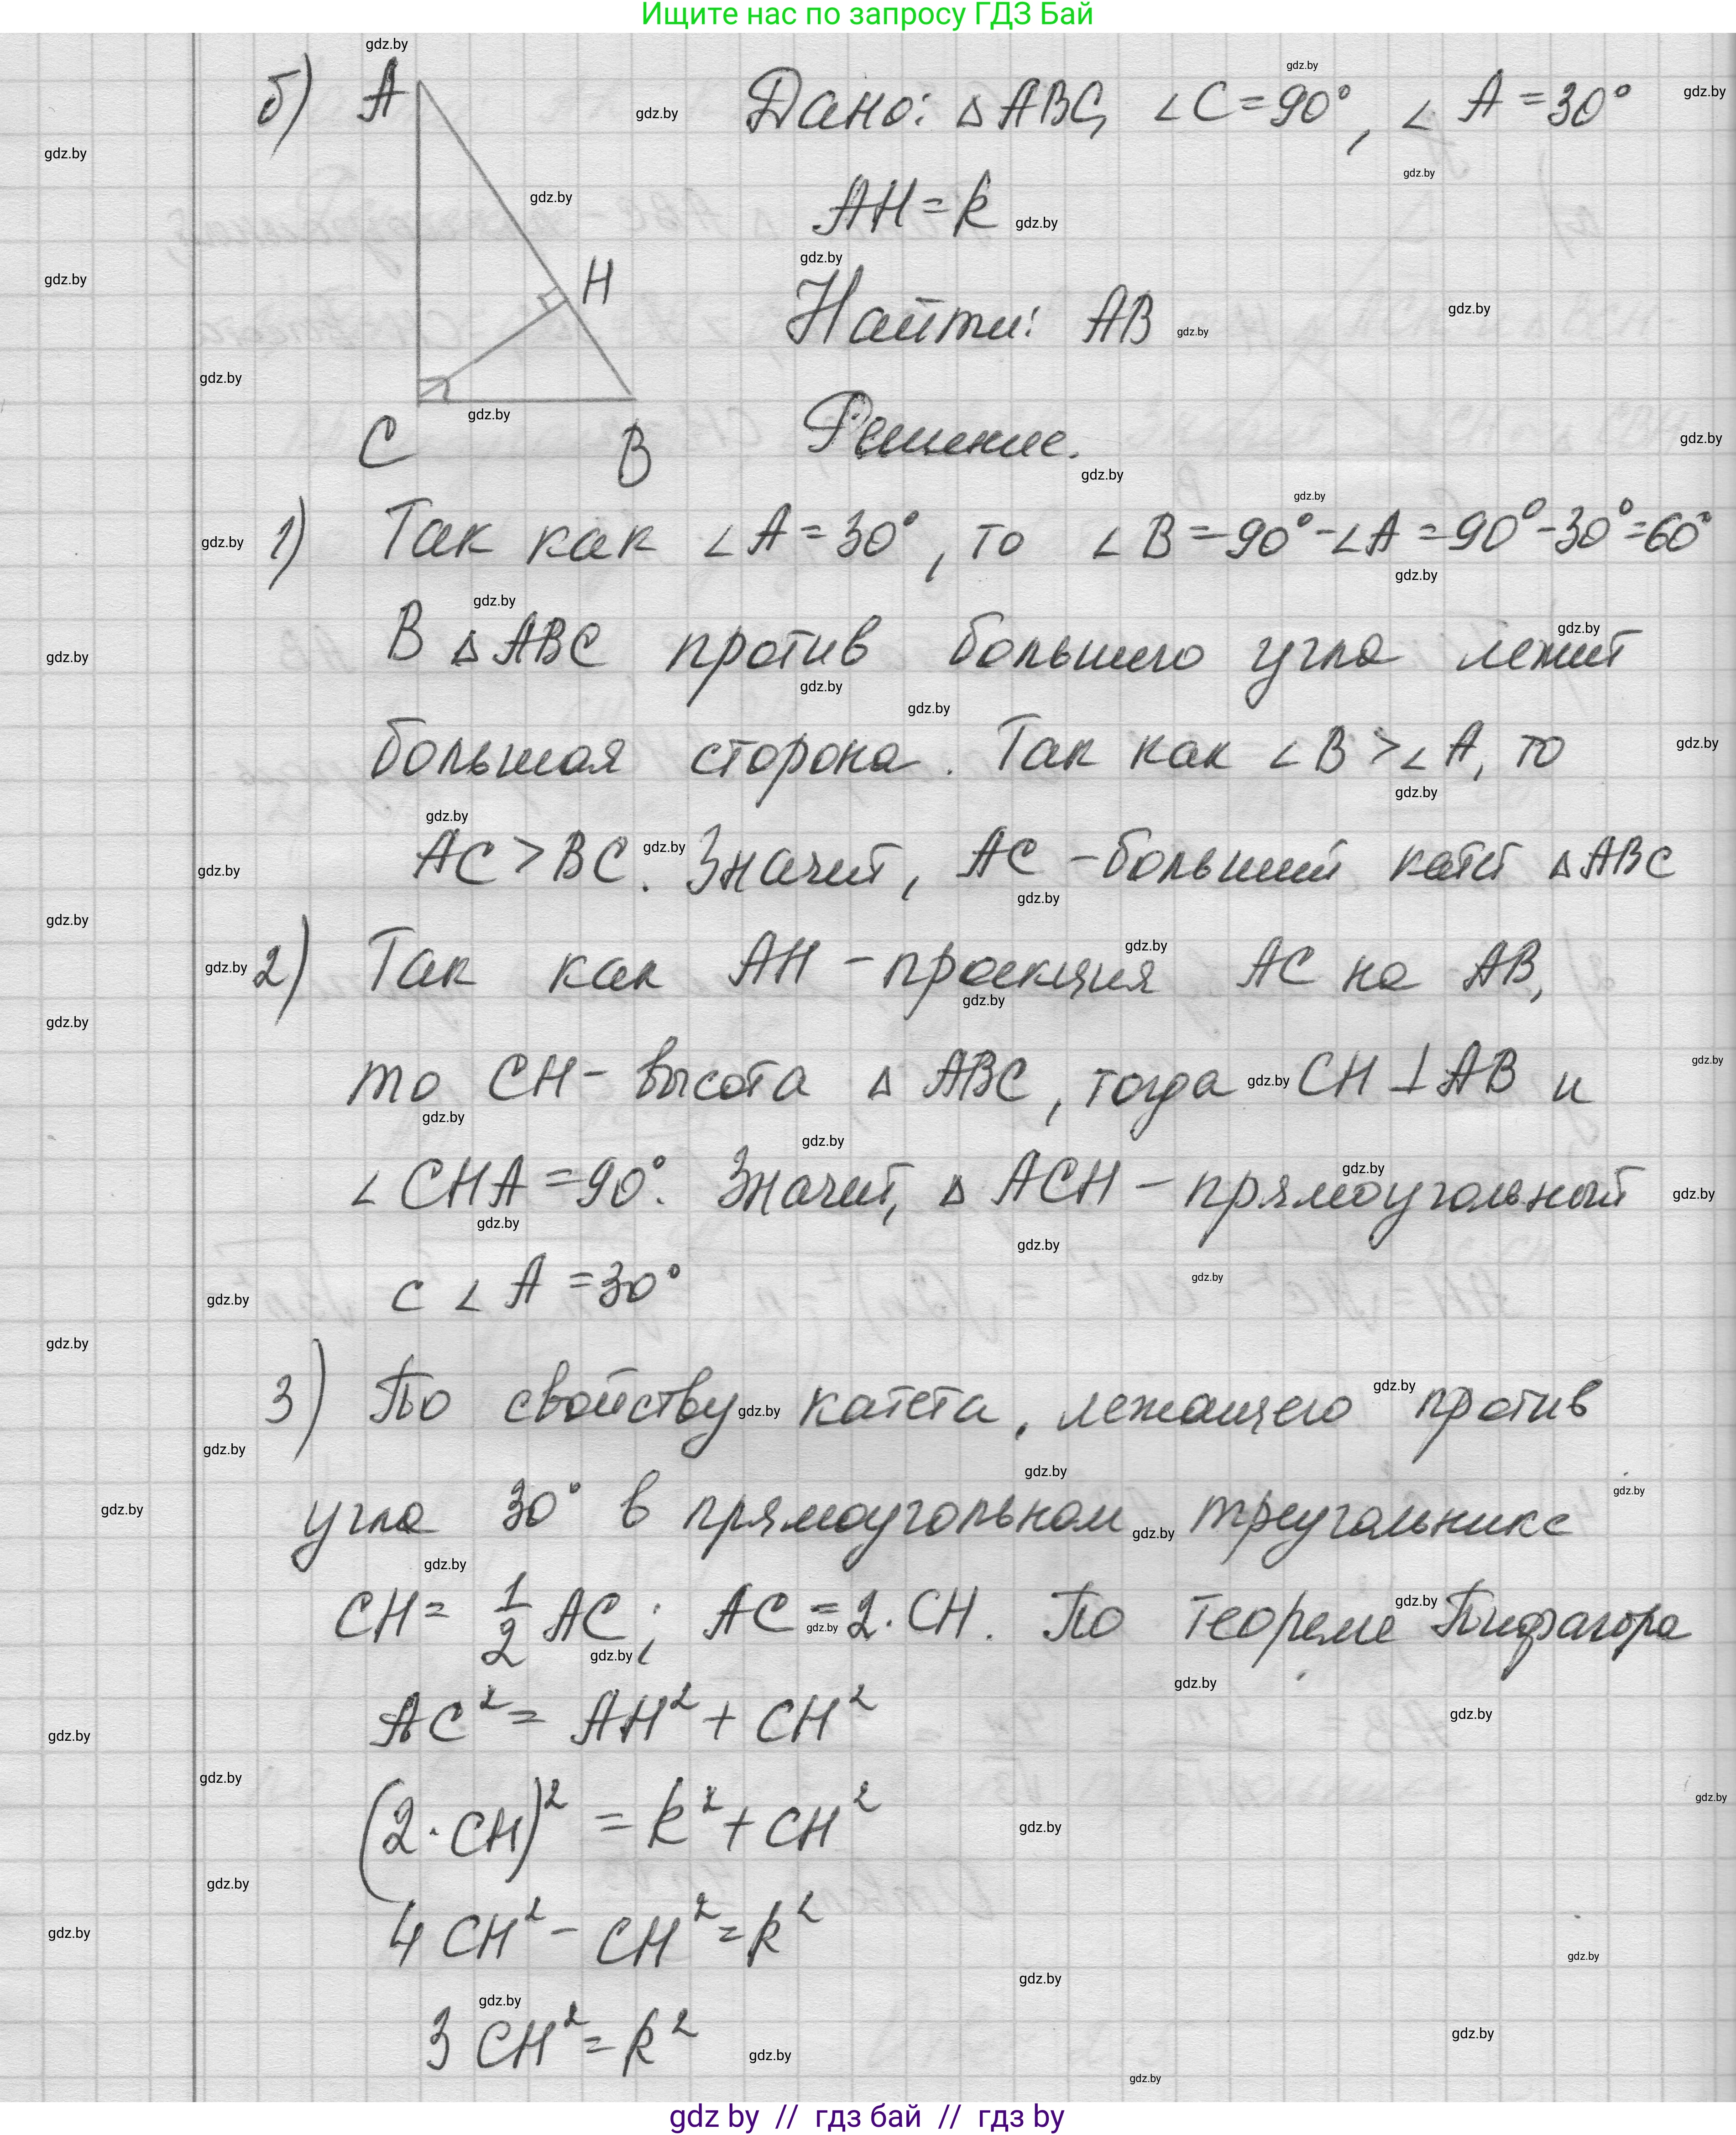 Ищите нас по запросу ГДЗ Бай
б) A H C B
Дано: △ABC, ∠C=90°, ∠A=30°
AH=k
Найти: AB
Решение.
1) Так как ∠A=30°, то ∠B=90°-∠A=90°-30°=60°
В △ABC против большего угла лежит
большая сторона. Так как ∠B>∠A, то
AC>BC. Значит, AC-больший катет △ABC
2) Так как AH-проекция AC на AB,
то CH-высота △ABC, тогда CH⊥AB и
∠CHA=90°. Значит, △ACH-прямоугольный
с ∠A=30°
3) По свойству катета, лежащего против
угла 30° в прямоугольном треугольнике
CH=1/2 AC; AC=2·CH. По теореме Пифагора
AC²=AH²+CH²
(2·CH)²=k²+CH²
4CH²-CH²=k²
3CH²=k²
gdz by // гдз бай // гдз by